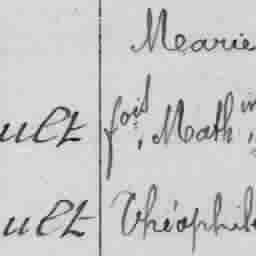 Marie
ult fois, Math in,
ult Théophil